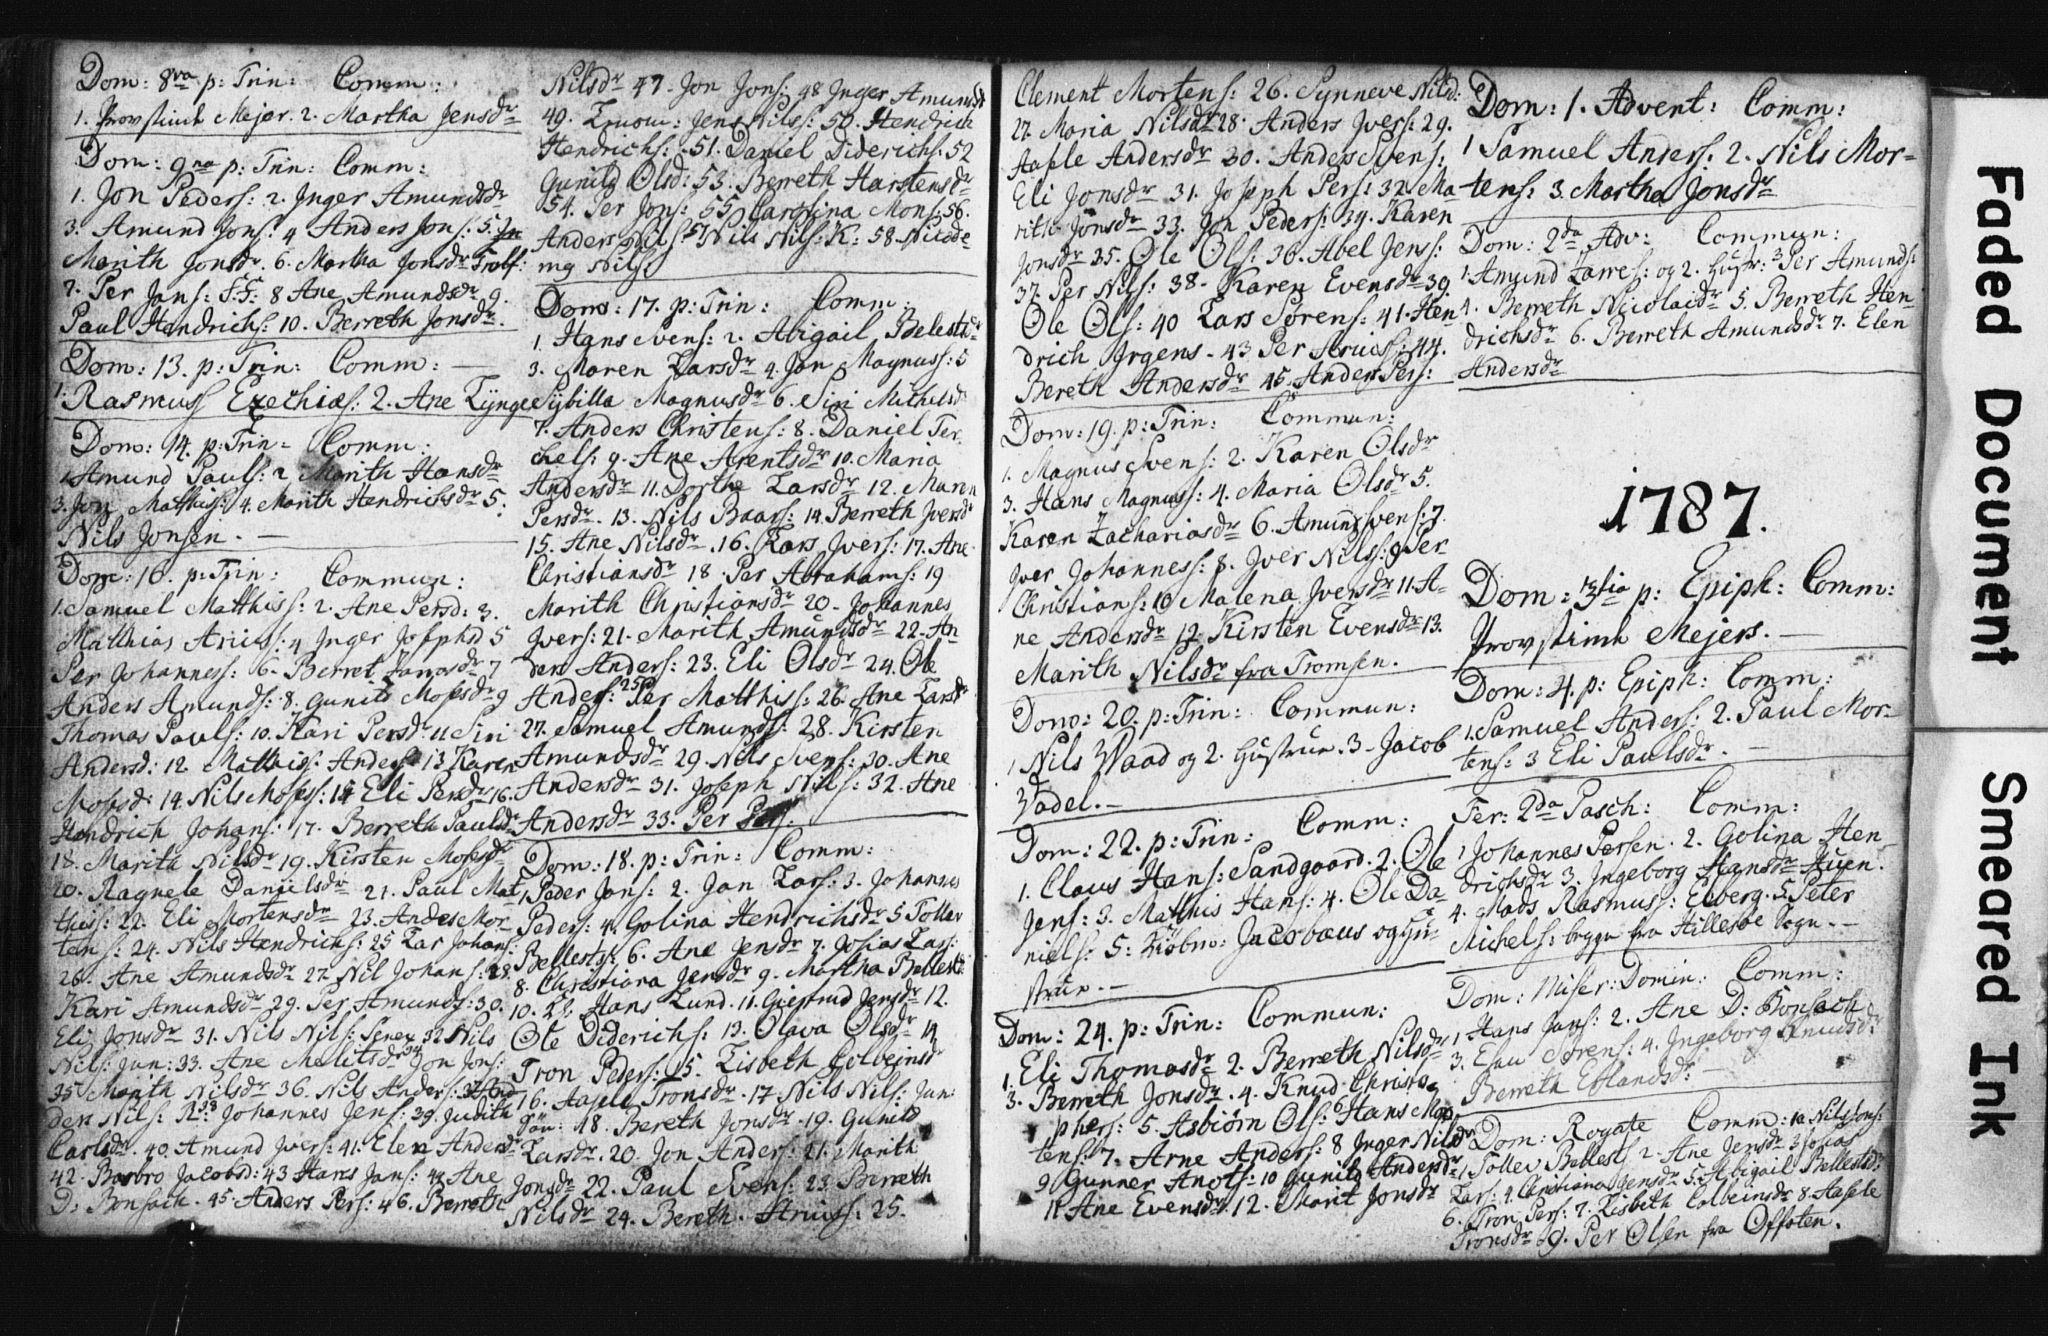 Dom: 8va p: Trin: Comm:
1. Provstinde Mejer. 2. Martha Jensdr
Dom: 9na p: Trin: Comm:
1. Jon Peders: 2. Inger Amundsdr
3. Amund Jons: 4 Anders Jons: 5.
Marith Jonsdr. 6. Martha Jonsdr Trolf:
7. Per Jans: S:S: 8 Ane Amundsdr 9.
Paul Hendrichs: 10. Berreth Jonsdr.
Dom: 13. p: Trin: Comm:
1. Rasmus Ezechiæs: 2. Ane Lynge
Dom: 14. p: Trin: Comm:
1 Amund Pauls: 2 Marith Hansdr
3. Jon Mathis: 4. Marith Hendrichsdr 5.
Nils Jonsen.
Dom: 16. p: Trin: Commun:
1. Samuel Matthiss: 2. Ane Persd: 3.
Matthias Arius: 4 Inger Josephsd 5
Per Johanness: 6. Berret 7
Anders Amunds: 8. Gunild Mosesdr 9
Thomas Pauls: 10. Kari Persdr 11 Siri
Andersd: 12 Mathis Anders: 13 Karen
Mosesd: 14. Nils Moses: 15 Eli Persdr 16.
Hendrich Johans: 17. Berreth Paulsdr
18. Marith Nilsdr 19. Kirsten Mosesdr
20. Ragnele Danielsdr 21. Paul Mat
thiss: 22. Eli Mortensdr 23. Andes Mor
tens: 24. Nils Hendrichs: 25 Lar Johans:
26. Ane Amundsdr 27. Nil Johans: 28.
Kari Amundsdr 29. Per Amunds: 30.
Eli Jonsdr 31. Nils Nils: Senex 32 Nils
Nils: Jun: 33. Ane 34 Jon Jons:
35 Marith Nilsdr 36. Nils Anders: 37
Nils: K: 38 Johannes Jens: 39. Judith
Carlsdr. 40. Amund Ivers: 41. Elen Andersdr
42. Barbro Jacobsd: 43 Hans Jans: 44 Ane
D: Bonsach. 45 Anders Pers: 46. Berreth
Nilsdr 47. Jon Jons: 48 Inger Amundsd
49. Jens Nils: 50. Hendrich
Hendrichs: 51. Daniel Diderichs: 52
Gunild Olsd: 53. Berreth Karstensdr
54. Per Jons: 55 Carolina Mons: 56.
Anders Nils: 57 Nils Nils: K: 58. Nicode
mus Nils:
Dom: 17. p: Trin: Comm:
1. Hans Svens: 2. Abigail Belestsdr
3. Maren Larsdr 4. Jon Magnuss: 5
Sybilla Magnusdr 6. Siri Michelsdr
7. Anders Christens: 8. Daniel Ter
chels: 9. Ane Arentsdr 10. Maria
Andersdr 11. Dorthe Larsdr 12. Maren
Persdr. 13. Nils Baars: 14. Berreth Iversdr
15. Ane Nilsdr. 16. Lars Ivers: 17. Ane
Christiansdr 18 Per Abrahams: 19
Marith Christiansdr 20. Johannes
Ivers: 21. Marith Amundsdr 22. An
ders Anders: 23. Eli Olsdr 24. Ole
Anders: 25 Per Matthiss: 26. Ane Larsdr
27. Samuel Amunds: 28. Kirsten
Amundsdr 29. Nils Svens: 30. Ane
Andersdr 31. Joseph Nils: 32. Ane
Andersdr 33. Per Pers:
Dom: 18. p: Trin: Comm:
1 Peder Jons: 2. Jan Lars: 3. Johannes
Peders: 4. Golina Hendrichsdr 5 Tollev
Bellests: 6. Ane Jensdr 7. Josias Lars:
8. Christiana Jensdr 9. Martha Bellestsd
10. Kl. Hans Lund. 11. Giertrud Jensdr 12.
Ole Diderichs: 13. Olava Olsdr 14
Tron Peders: 15. Lisbeth Colbeinsdr
16. Aasele Tronsdr. 17 Nils Nils: Jun:
18. Bereth Jonsdr. 19. Gunild
Larsdr. 20. Jon Anders: 21. Marith
Jonsdr 22. Paul Svens: 23 Berreth
Nilsdr 24. Bereth. Ariuss: 25.
Clement Mortens: 26. Synneve Nilsd:
27. Maria Nilsdr 28. Anders Ivers: 29.
Aasele Andersdr 30. Anders Svens:
Eli Jonsdr 31. Joseph Pers: 32. Ma
rith Jonsdr 33. Jon Peders: 34. Karen
Jonsdr 35. Ole Ols: 36. Abel Jens:
37. Per Nils: 38. Karen Evensdr 39.
Ole Ols: 40 Lars Sørens: 41. Hen
drich Irgens. 43 Per Arius: 44.
Bereth Andersdr 45. Anders Pers:
Dom: 19. p: Trin: Commun:
1. Magnus Svens: 2. Karen Olsdr
3. Hans Magnuss: 4. Maria Olsdr 5.
Karen Zachariasdr 6. Amund Svens: 7.
Iver Johanness: 8. Iver Nils: 9 Per
Christians: 10 Malena Iversdr 11. A-
ne Andersdr 12. Kirsten Evensdr 13.
Marith Nilsdr fra Tromsen.
Dom: 20. p: Trin: Commun:
1 Nils Waad og 2. Hustrue. 3. Jacob
Wadel.
Dom: 22. p: Trin: Comm:
1. Claus Hans: Sandgaard. 2. Ole
Jens: 3. Mathis Hans: 4. Ole Da-
niels: 5: Kiøbm: Jacobæus og Hu-
strue.
Dom: 24. p: Trin: Commun:
1. Eli Thomasdr 2. Berreth Nilsdr
3. Berreth Jonsdr. 4. Knud Christo
phers: 5. Asbiörn Ols: 6 Hans Mor
tens: 7. Arne Anders: 8 Inger Nilsdr
9. Gunner Anots: 10 Gunild Andersdr
11. Ane Evensdr. 12. Marit Jonsdr
Dom: 1. Advent: Comm:
1 Samuel Anders: 2. Nils Mor-
tens: 3. Martha Jonsdr
Dom: 2da Adv: Commun:
1. Amund Lawes: og 2. Hustr: 3 Per Amunds:
4. Berreth Nicolaidr 5. Berreth Hen-
drichsdr 6. Berreth Amundsdr 7. Elen
Andersdr
1787.
Dom: 3tia p: Epiph: Comm:
Provstinde Mejers.
Dom: 4. p: Epiph: Comm:
1. Samuel Anders: 2. Paul Mor-
tens: 3 Eli Paulsdr.
Fer: 2da Pasch: Comm:
1 Johannes Persen. 2. Golina Hen
drichsdr 3. Ingeborg Hansdr Huen.
4. Mads Rasmus: Elberg. 5. Peter
Michels: begge fra Hillesøe Sogn.
Dom: Miser: Domin: Comm:
1 Hans Jans: 2. Ane D: Bonsach
3. Enu Sørens: 4. Ingeborg Knudsdr
Berreth Erlandsdr
Dom: Rogate Comm: 10. Nils Jons:
1 Tollev Bellests: 2. Ane Jensdr 3 Josias
Lars: 4. Christiana Jensdr 5. Abigail Bellestsdr
6. Tron Pers: 7. Lisbeth Colbeinsdr 8. Aasele
Tronsdr 9. Per Olsen fra Offoten.
Faded Document
Smeared Ink